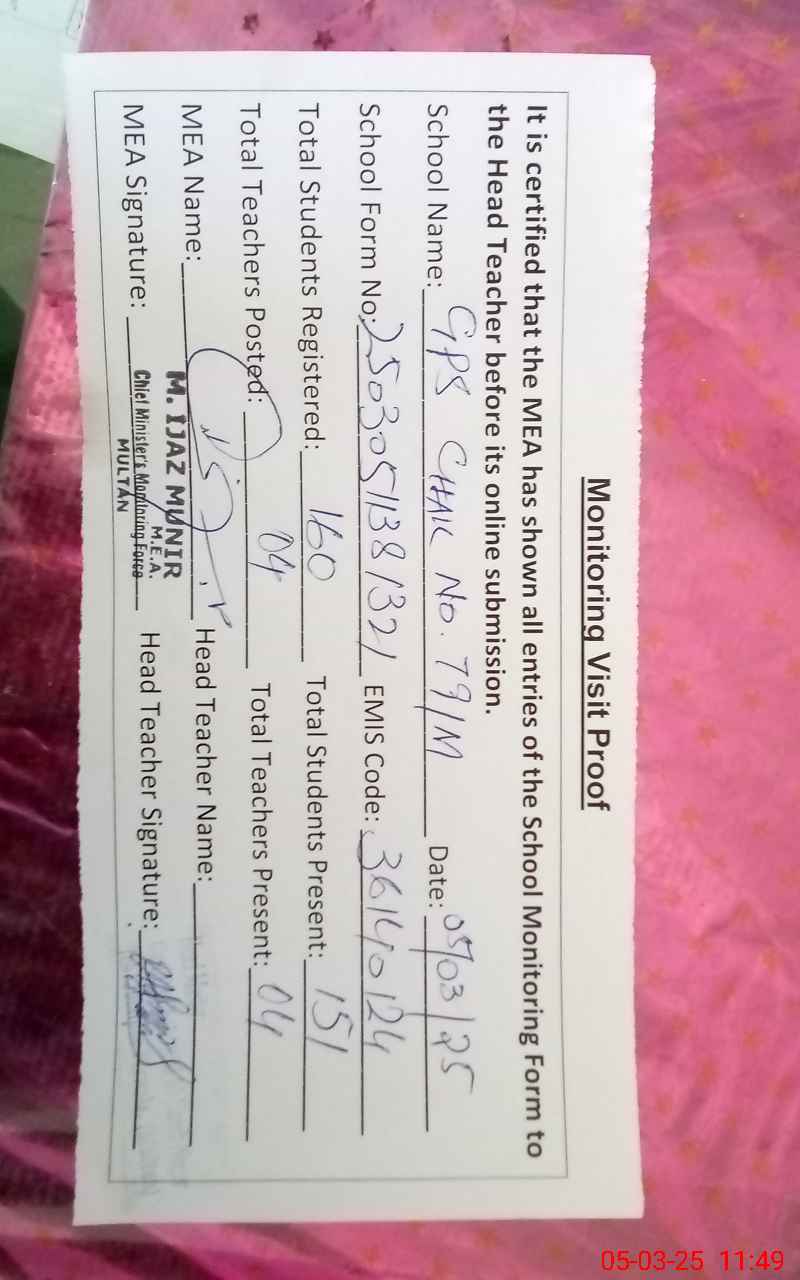 Monitoring Visit Proof
It is certified that the MEA has shown all entries of the School Monitoring Form to
the Head Teacher before its online submission.
School Name: GPS CHAK No. 79/M Date: 05/03/25
School Form No: 25030511381321 EMIS Code: 36140124
Total Students Registered: 160 Total Students Present: 151
Total Teachers Posted: 04 Total Teachers Present: 04
MEA Name: Head Teacher Name:
M. IJAZ MUNIR
M.E.A.
MEA Signature: Chief Minister's Monitoring Force Head Teacher Signature:
MULTAN
05-03-25 11:49